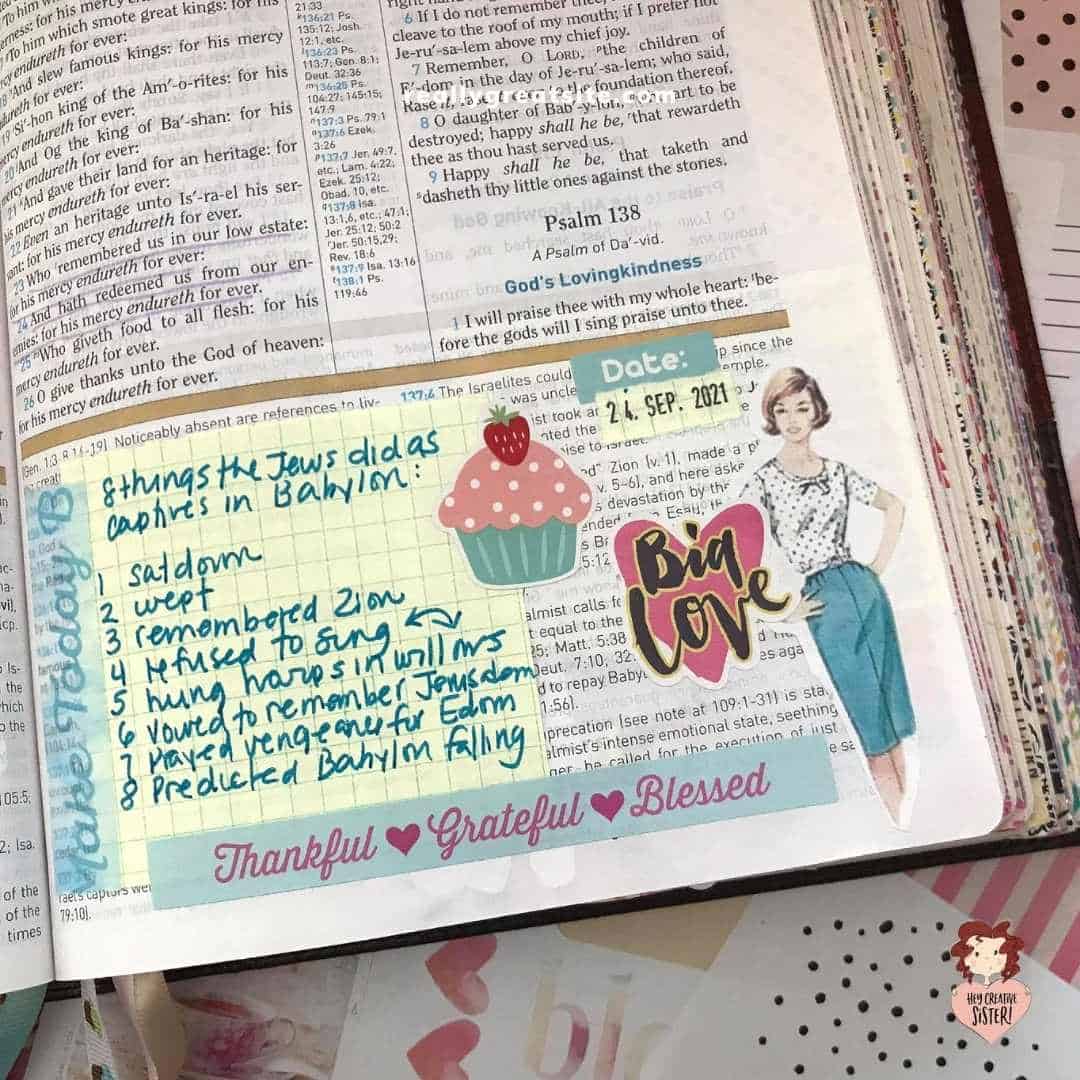 ness: for his mercy end
To him which smote great kings: for his
mercy endureth for ever:
18 And slew famous kings: for his mercy
endureth for ever:
19 Si′-hon king of the Am′-o-rites: for his
mercy endureth for ever:
20 And Og the king of Ba′-shan: for his
mercy endureth for ever:
21 And gave their land for an heritage: for
his mercy endureth for ever:
22 Even an heritage unto Is′-ra-el his ser-
vant: for his mercy endureth for ever.
23 Who remembered us in our low estate:
for his mercy endureth for ever:
24 And hath redeemed us from our en-
emies: for his mercy endureth for ever.
25 Who giveth food to all flesh: for his
mercy endureth for ever.
26 O give thanks unto the God of heaven:
for his mercy endureth for ever.
21:33
136:21 Ps.
135:12; Josh.
12:1, etc.
136:23 Ps.
113:7; Gen. 8:1;
Deut. 32:36
136:25 Ps.
104:27; 145:15;
147:9
137:3 Ps. 79:1
137:6 Ezek.
3:26
137:7 Jer. 49:7,
etc.; Lam. 4:22;
Ezek. 25:12;
Obad. 10, etc.
137:8 Isa.
13:1,6, etc.; 47:1;
Jer. 25:12; 50:2
Jer. 50:15,29;
Rev. 18:6
137:9 Isa. 13:16
138:1 Ps.
119:46
6 If I do not remember thee,
cleave to the roof of my mouth; if I prefer not
Je-ru′-sa-lem above my chief joy.
7 Remember, O LORD, the children of
E in the day of Je-ru′-sa-lem; who said,
Rase foundation thereof.
8 O daughter of Bab′-y-lon, art to be
destroyed; happy shall he be, that rewardeth
thee as thou hast served us.
9 Happy shall he be, that taketh and
dasheth thy little ones against the stones.
reallygreatsite.com
Psalm 138
A Psalm of Da′-vid.
God's Lovingkindness
1 I will praise thee with my whole heart: be-
fore the gods will I sing praise unto thee.
(Gen. 1:3, 8,14-19). Noticeably absent are references to liv-
137:4 The Israelites could
since the
was uncle
emple.
ist took a
nted the
Date:
24. SEP. 2021
Zion (v. 1), made a
v. 5-6), and here aske
devastation by the
almist calls for
t equal to the
25; Matt. 5:38
Deut. 7:10, 32
d to repay Baby
1:56).
precation (see note at 109:1-31) is
almist's intense emotional state, seething
he called for the execution of just
8 things the Jews did as
captives in Babylon:
1 sat down
2 wept
3 remembered Zion
4 refused to sing
5 hung harps in willows
6 vowed to remember Jerusalem
7 prayed vengeance for Edom
8 Predicted Babylon falling
Make Today B
Big
Love
Thankful Grateful Blessed
raels captors we
79:10).
105:5;
2; Isa.
of the
of the
times
HEY CREATIVE
SISTER!